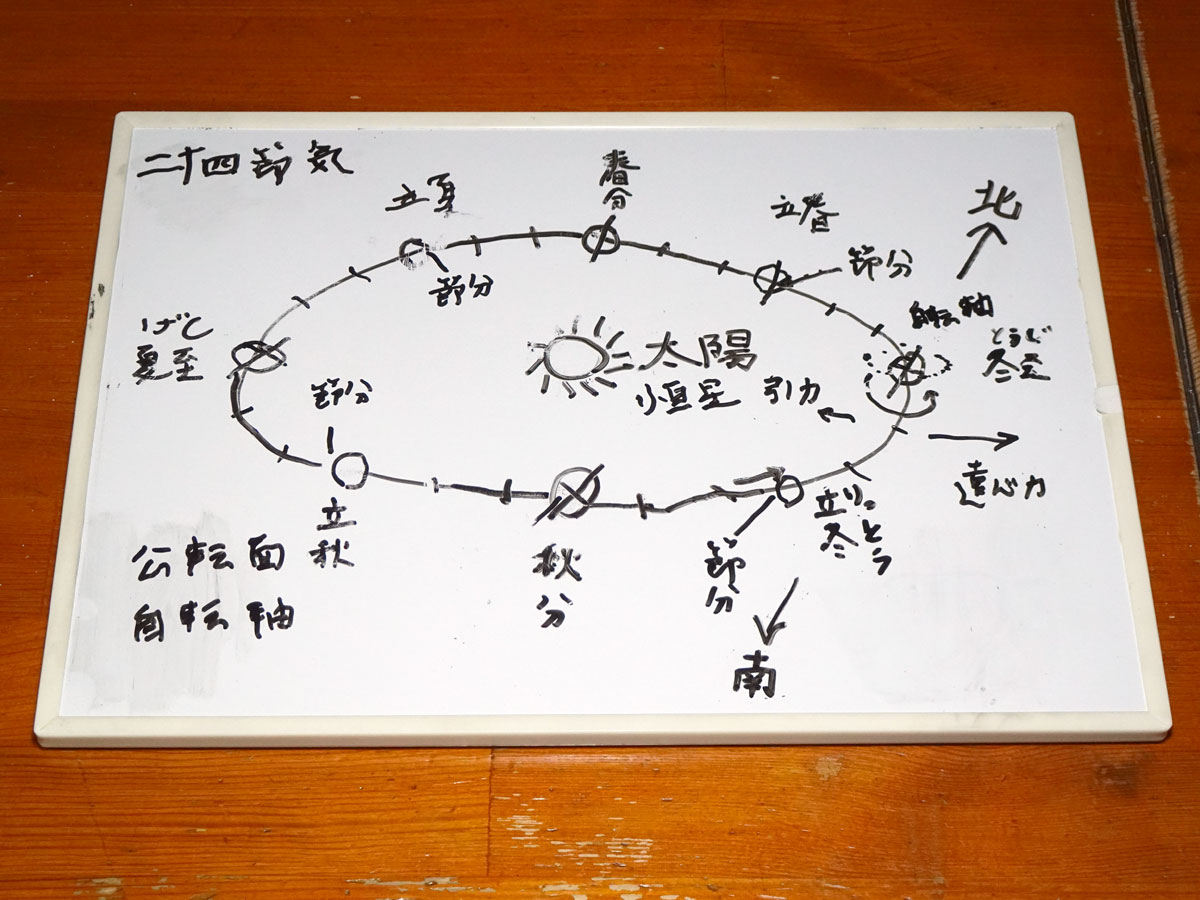 二十四節気
春分
立夏
立春
北
節分
節分
自転軸
げし
夏至
太陽
とうじ
冬至
恒星
引力
節分
遠心力
立秋
立冬
りっとう
秋分
節分
公転面
自転軸
南